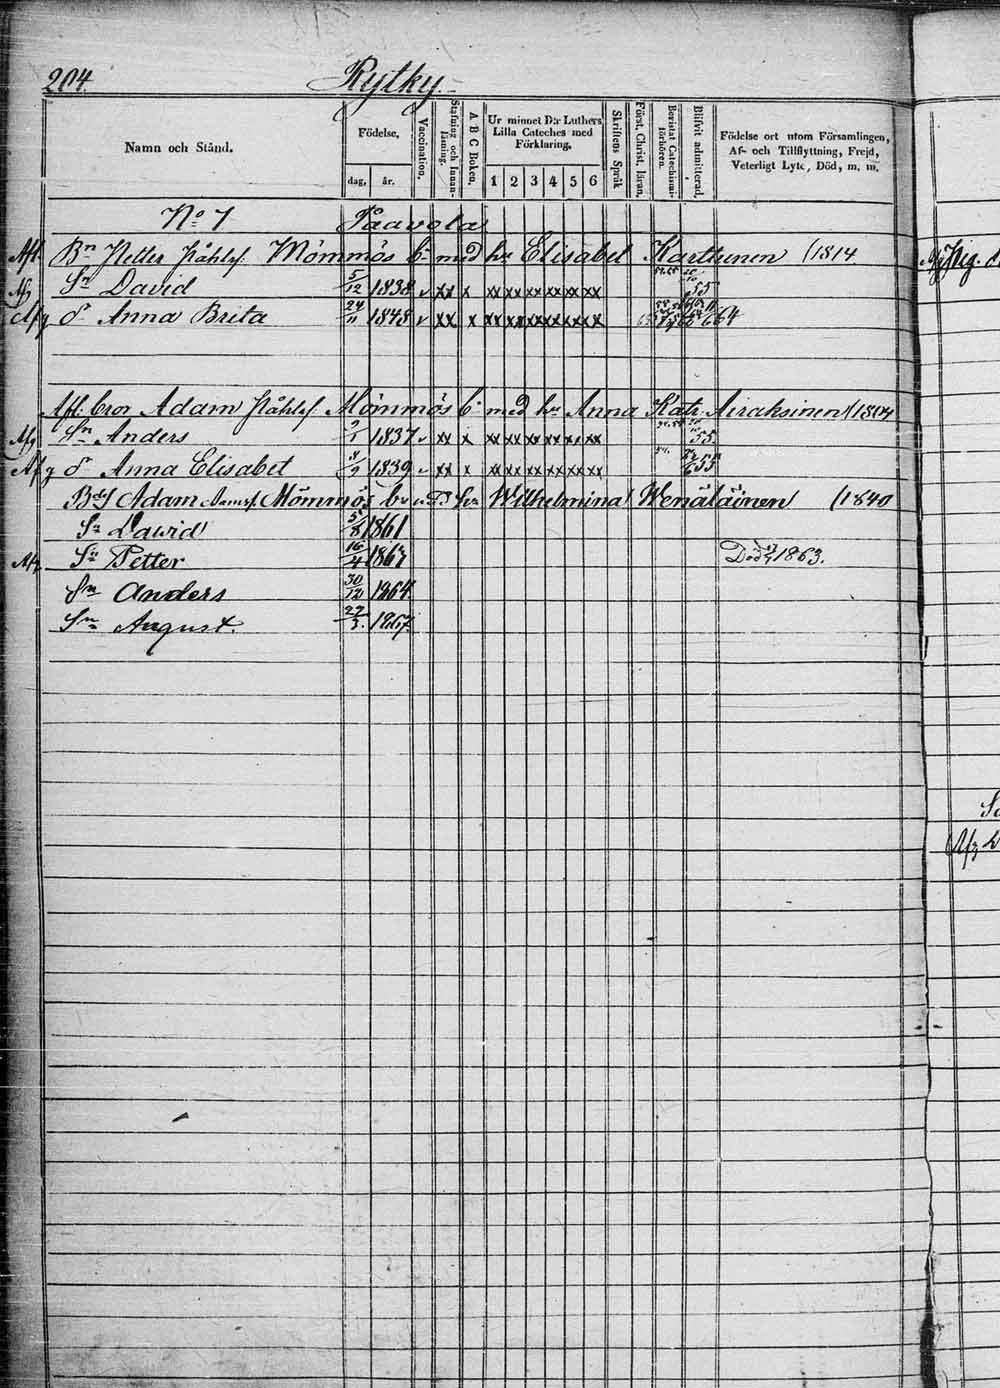 204. Rytky.
Namn och Stånd.
Födelse,
dag, år.
Vaccination.
Stafning och Innanläsning.
A B C Boken.
Ur minnet D:r Luthers
Lilla Cateches med
Förklaring,
1 2 3 4 5 6
Skriftens Språk
Först. Christ. läran.
Bevistat Catechismiförhören.
Blifvit admitterad.
Födelse ort utom Församlingen,
Af- och Tillflyttning, Frejd,
Veterligt Lyte, Död, m. m.
No 7 Paavola
Afl. Bn Petter Påhlsf. Mömmös b. med hu Elisabet Karttunen (1814
Afg Sn David 5/12 1838 v xx x xx xx xx xx xx xx 55
Afg dr Anna Brita 24/11 1848 v xx x xx xx xx xx xx xx 664
Afl. bror Adam Påhlsf Mömmös b. med hu Anna Katr. Airaksinen (1804
Afg Sn Anders 2/1 1837 v xx x xx xx xx xx xx xx 55
Afg dr Anna Elisabet 8/2 1839 v xx x xx xx xx xx xx xx 655
Adam Adamsf. Mömmös b. hu Wilhelmina Wenäläinen (1840
Sn Dawid 5/8 1861
Afg Sn Petter 16/4 1863 Död 1863.
Sn Anders 30/12 1864.
Sn August. 27/3. 1867.